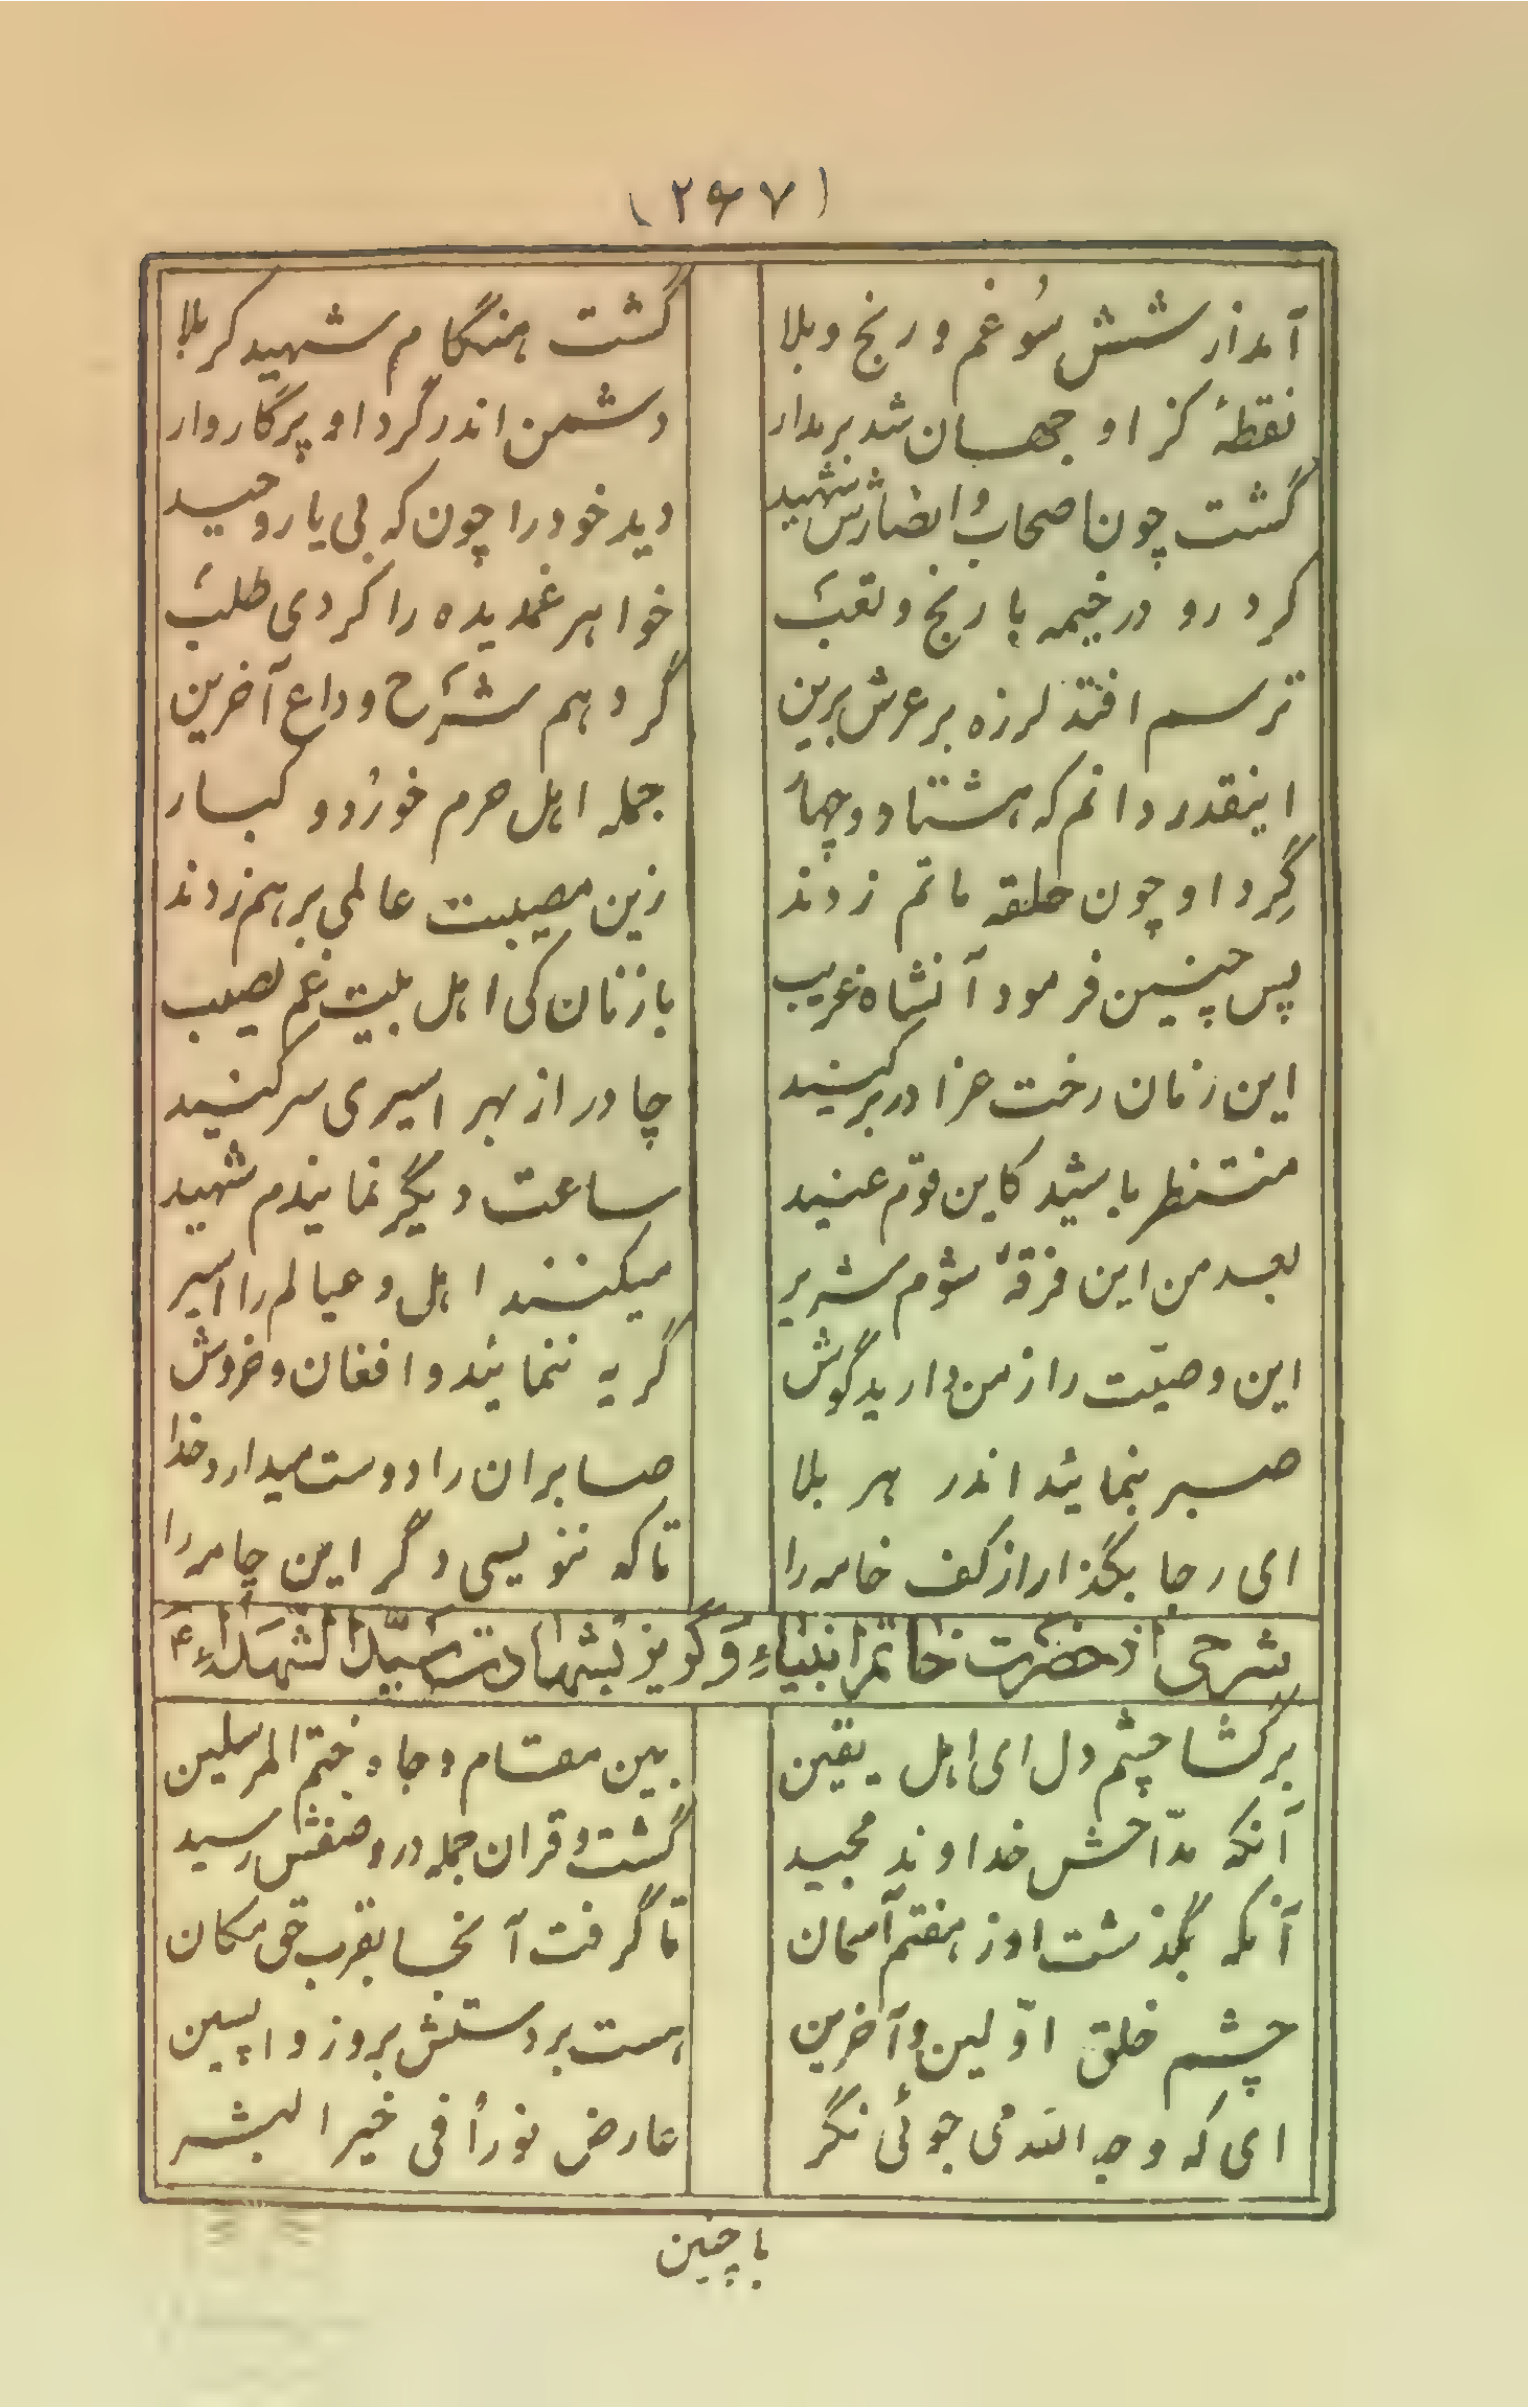 (۲۶۷)
آمد از شش سُو غم و رنج و بلا گشت هنگام شهید کربلا
نقطهٔ کز او جهان شد برمدار دشمن اندر گرد او پرگاروار
گشت چون اصحاب و انصارش شهید دید خود را چون که بی یار و حید
کرد رو در خیمه با رنج و تعب خواهر غمدیده را کردی طلب
ترسم افتد لرزه بر عرش برین گر دهم شرح وداع آخرین
اینقدر دانم که هشتاد و چهار جمله اهل حرم خورد و کبار
گِرد او چون حلقه ماتم زدند زین مصیبت عالمی برهم زدند
پس چنین فرمود آنشاه غریب با زنان کی اهل بیت غم نصیب
این زمان رخت عزا در بر کنید چادر از بهر اسیری سر کنید
منتظر باشید کاین قوم عنید ساعت دیگر نمایندم شهید
بعد من این فرقهٔ شوم شریر میکنند اهل و عیالم را اسیر
این وصیّت را ز من دارید گوش گریه ننمائید و افغان و خروش
صبر بنمائید اندر هر بلا صابران را دوست میدارد خدا
ای رجا بگذار از کف خامه را تا که ننویسی دگر این چامه را
شرحی از حضرت خاتم انبیاء و گریز بشهادت سیّد الشّهداء ع
برگشا چشم دل ای اهل یقین بین مقام و جاه ختم المرسلین
آنکه مدّاحش خداوند مجید گشت و قران جمله در وصفش رسید
آنکه بگذشت او ز هفتم آسمان تا گرفت آنجا بقرب حق مکان
چشم خلق اوّلین و آخرین هست بر دستش بروز واپسین
ای که وجه الله می جوئی نگر عارض نوراً فی خیر البشر
با چنین